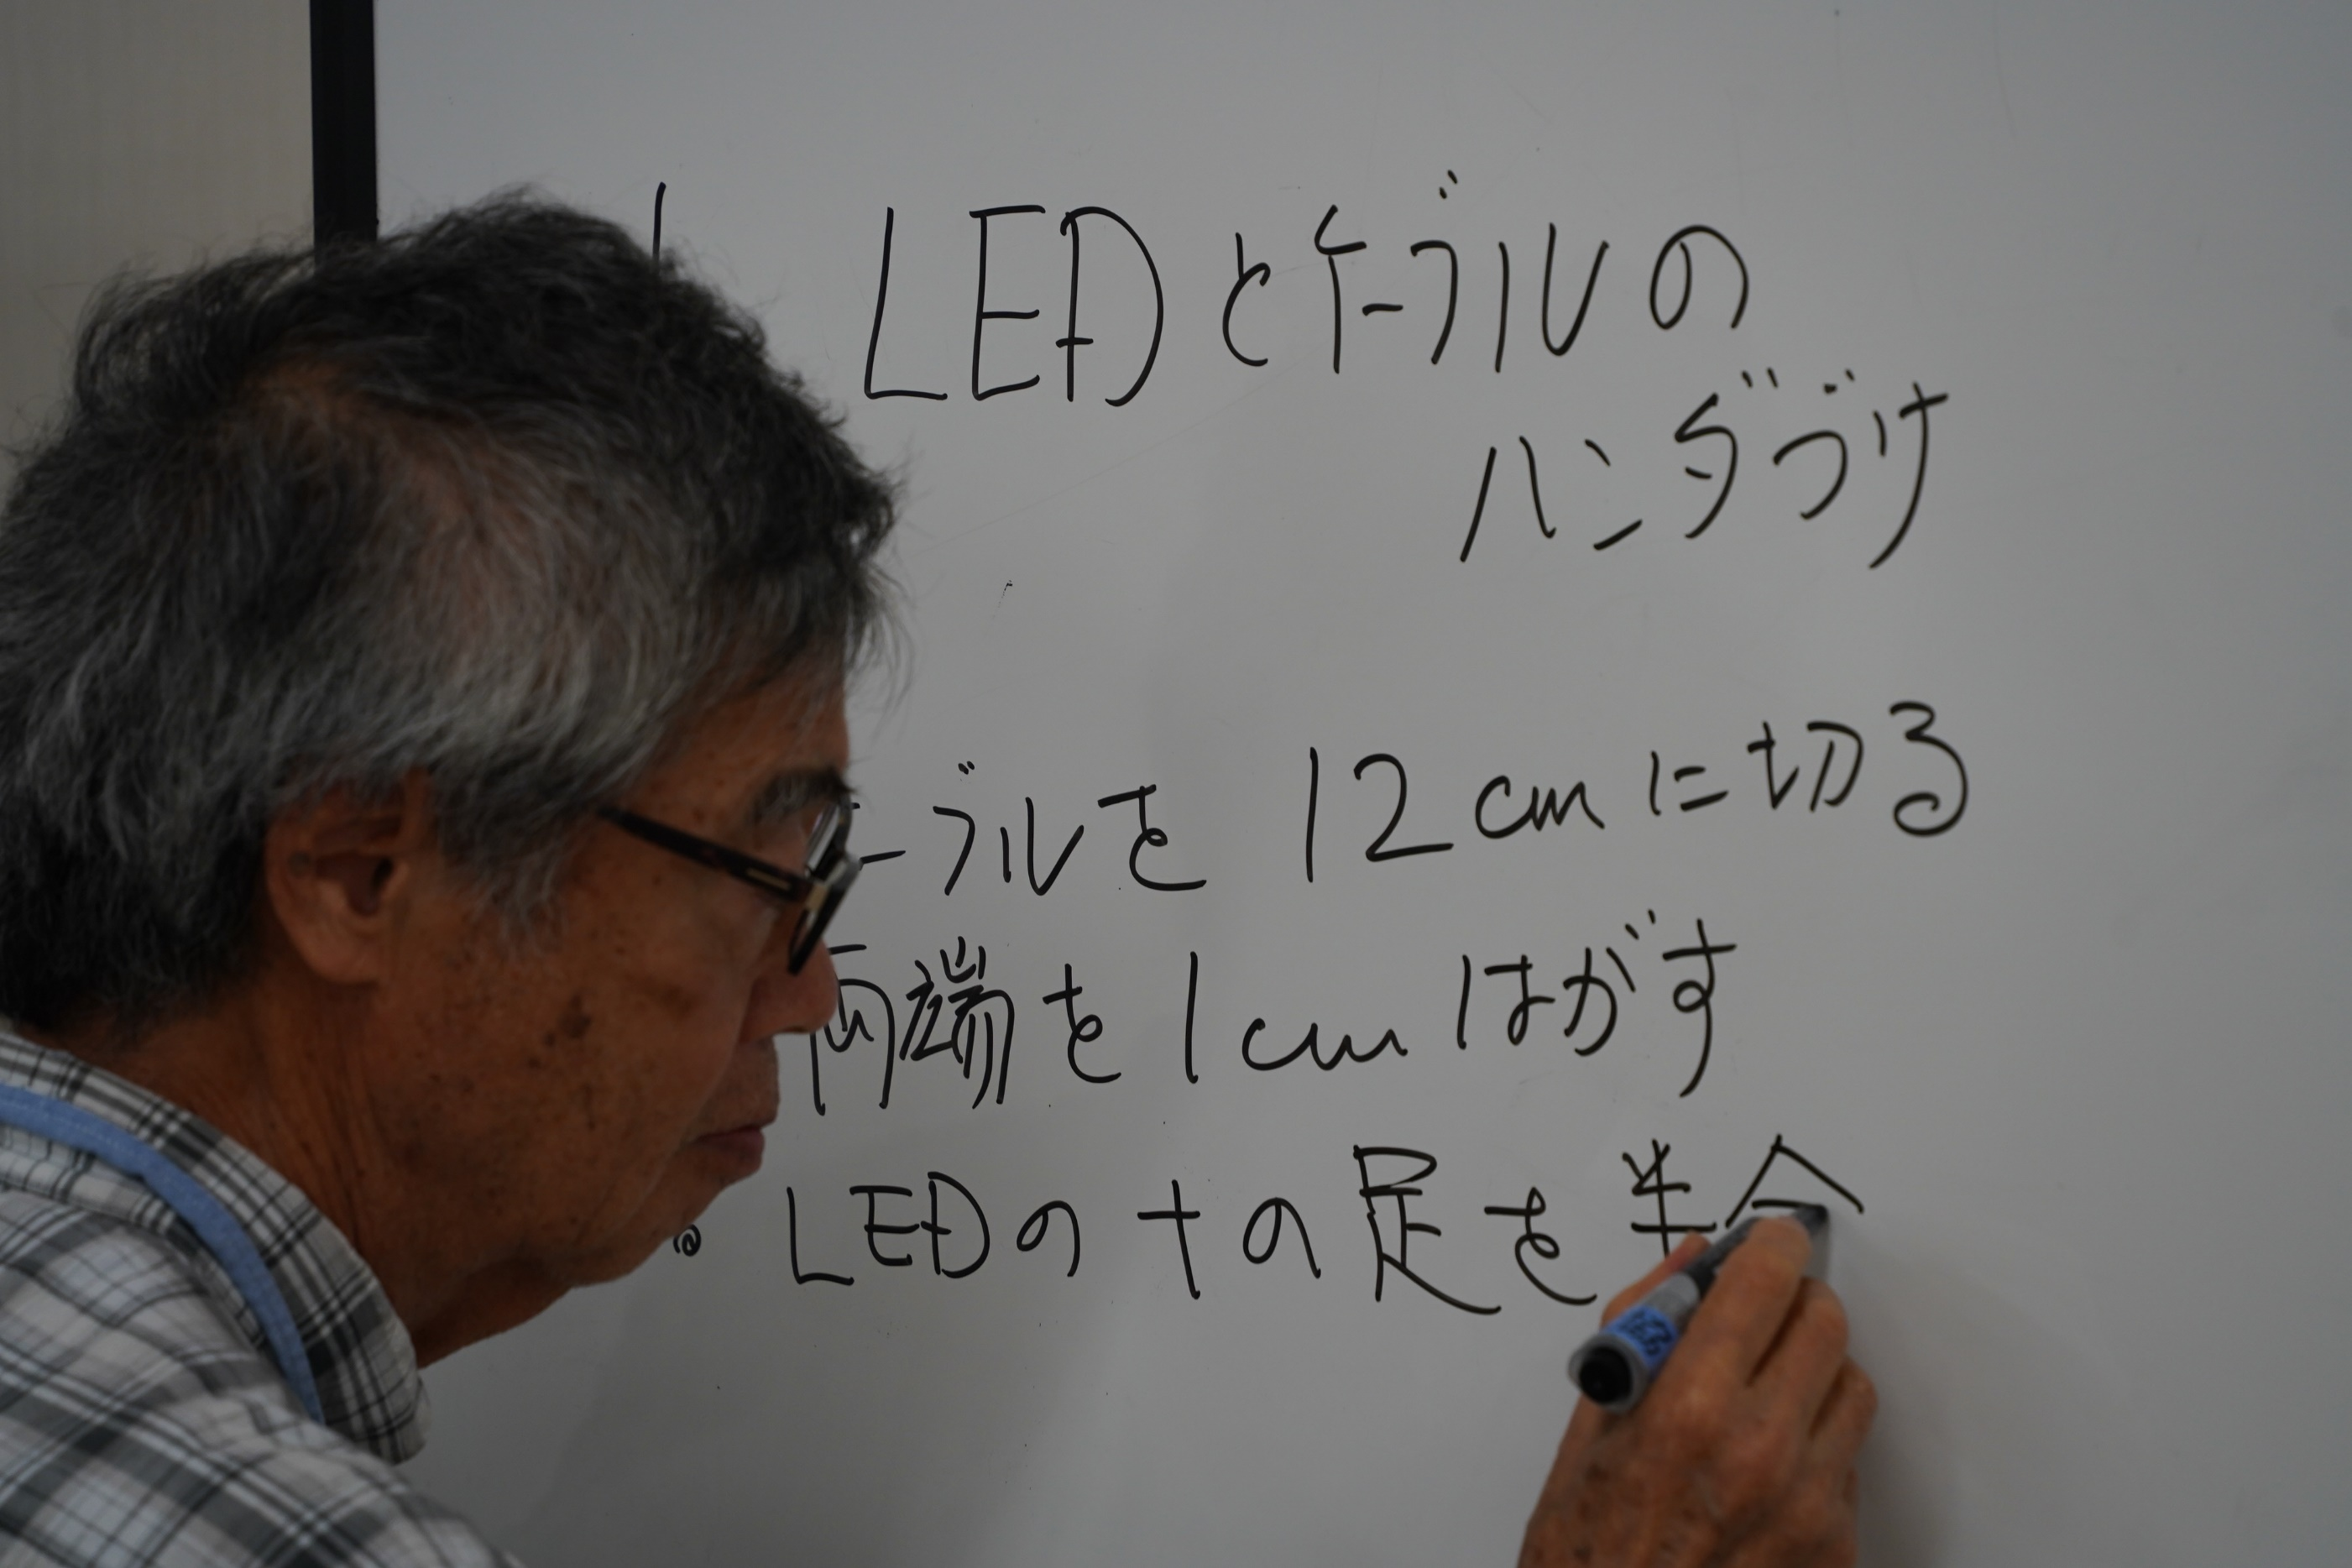 1 LEDとケーブルの
ハンダづけ
ーブルを 12cmに切る
両端を1cmはがす
◎ LEDの+の足を半分